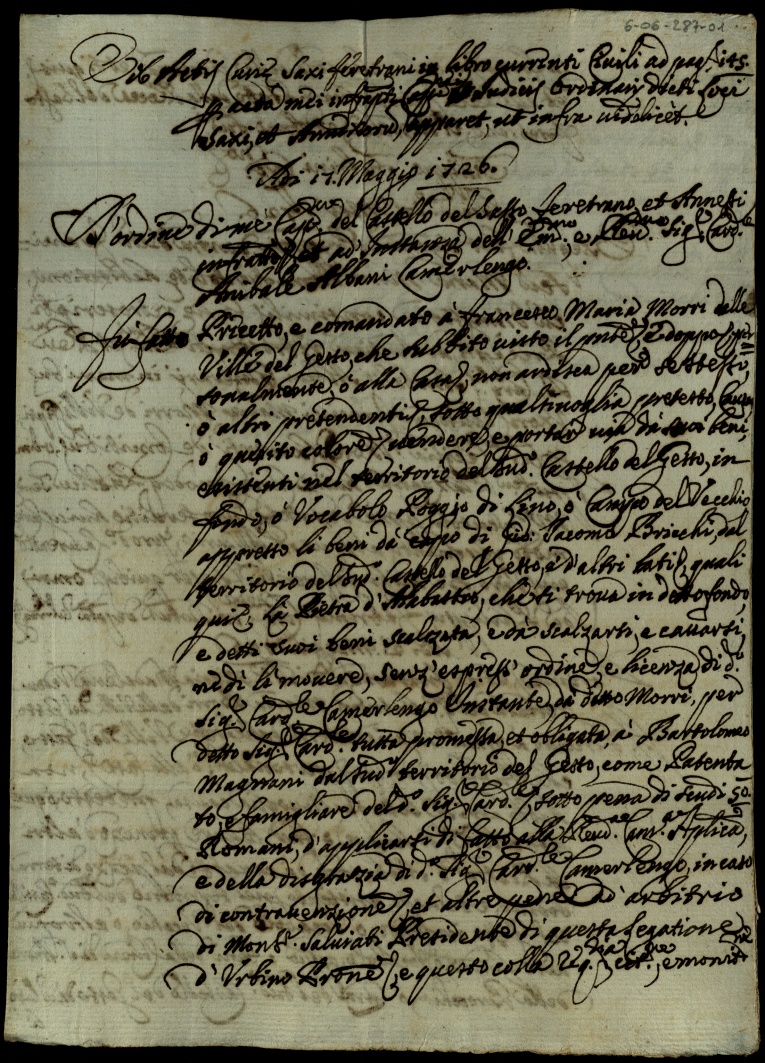 6-06-287-01
Sib Actis Curiæ Saxi feretrani in libro currenti Civili ad pag. 115.
acta mei infrapti Judicis Ordinarij dicti loci
Saxi, et Annexorum, apparet, ut infra videlicet.
Adi 17. Maggio 1726.
D'ordine di me Cap.no del Castello del Sasso feretrano, et Annessi
infratto, et ad Instanza dell' Em.mo, e Rev.mo Sig.r Card.le
Anibale Albani Camerlengo.
Fu fatto Precetto, e comandato à Francesco Maria Morri delle
Ville del Gesso, che subbito visto il pnte, e doppo
sonalmente, ò alla Casa, non ardisca per se stesso,
ò altri pretendenti, sotto qualsivoglia pretesto, causa
ò quesito colore, vendere, e portar via dà suoi beni,
esistenti nel territorio del sud.o Castello del Gesso, in
fondo, ò Vocabolo Poggio di Lino, ò Campo del Vecchio
appresso li beni dà capo di Gio: Jacomo Bricchi, dal
territorio del sud.o Castello del Gesso, e d'altri lati, quali
qui, La Pietra d'Alabastro, che si trova in detto fondo,
e detti suoi beni scalzata, e dà scalzarsi, e cavarsi,
nè di lì movere, senz'espress' ordine, e licenza di d.o
Sig.r Card.le Camerlengo Instante, da detto Morri, per
detto Sig.r Card.le tutta promessa, et obligata, à Bartolomeo
Magnani dal sud.o territorio del Gesso, come Patenta
to, e famigliare del d.o Sig.r Card.le, sotto pena di scudi 50.
Romani, d'applicarsi di fatto alla Rev.da Cam.a Aplica,
e della disgrazia di d.o Sig.r Card.le Camerlengo, in caso
di contravenzione, et altre pene ad arbitrio
di Mons.r Salviati Presidente di questa legatione
d'Urbino Prone, e questo colla ect., e monit